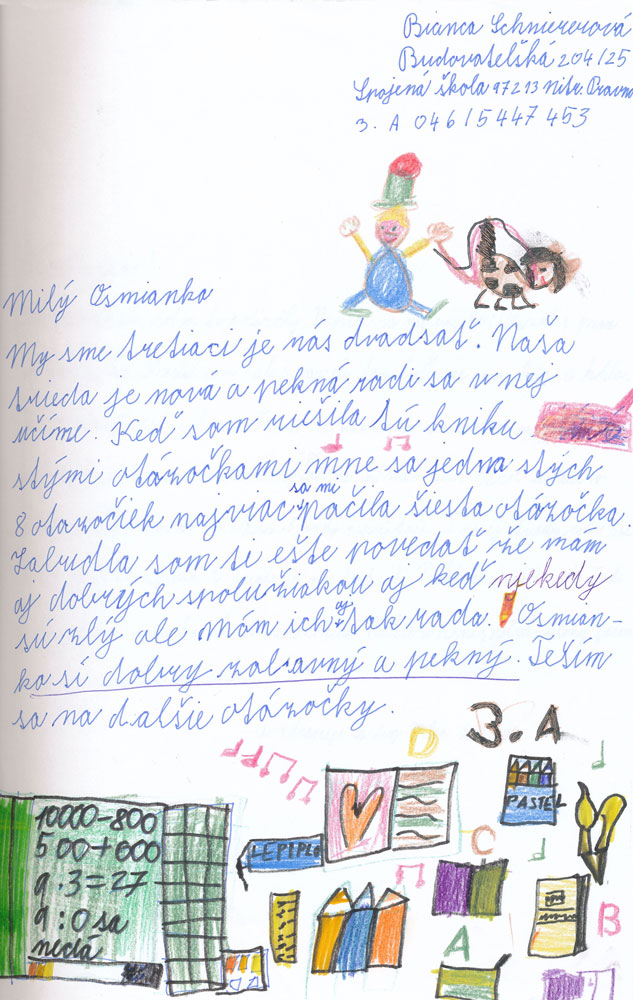 Bianca Schniererová
Budovatelská 204/25
Spojená škola 97213 Nitr. Pravno
3. A 046/5447 453
Milý Osmianko
My sme tretiaci je nás dvadsať. Naša
trieda je nová a pekná radi sa v nej
učíme. Keď som riešila tú knihu
stými otázočkami mne sa jedna stých
8 otazočiek najviac sa mi páčila šiesta otázočka.
Zabudla som ti ešte povedať že mám
aj dobrých spolužiakou aj keď niekedy
sú zlý ale mám ich aj tak rada. Osmian-
ko si dobry zabavný a pekný. Teším
sa na dalšie otázočky.
3. A
D
PASTEL
10000-800
500+600
9:3=27
9:0 sa
nedá
LEPIDLO
C
B
A